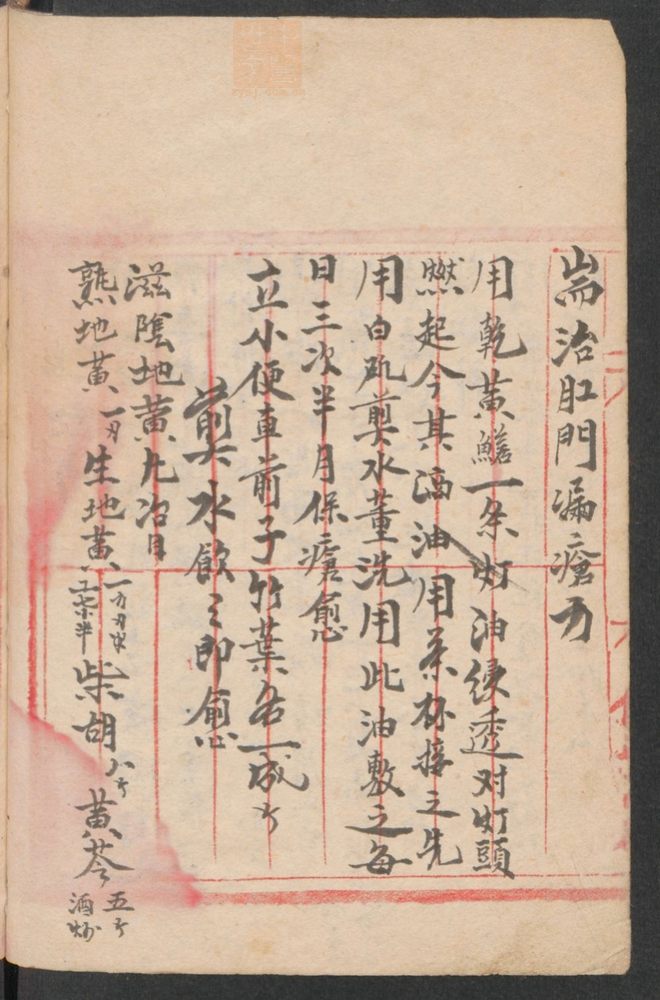 耑治肛門漏瘡方
用乾黃鱔一条灯油侵透对灯頭
燃起令其滴油用茶杯接之先
用白矾煎水薰洗用此油敷之每
日三次半月保瘡愈
立小便車前子竹葉各一戔
煎水飲之即愈
滋陰地黃丸治目
熟地黃一刄生地黃一刄柴胡八亇黃芩五亇酒炒